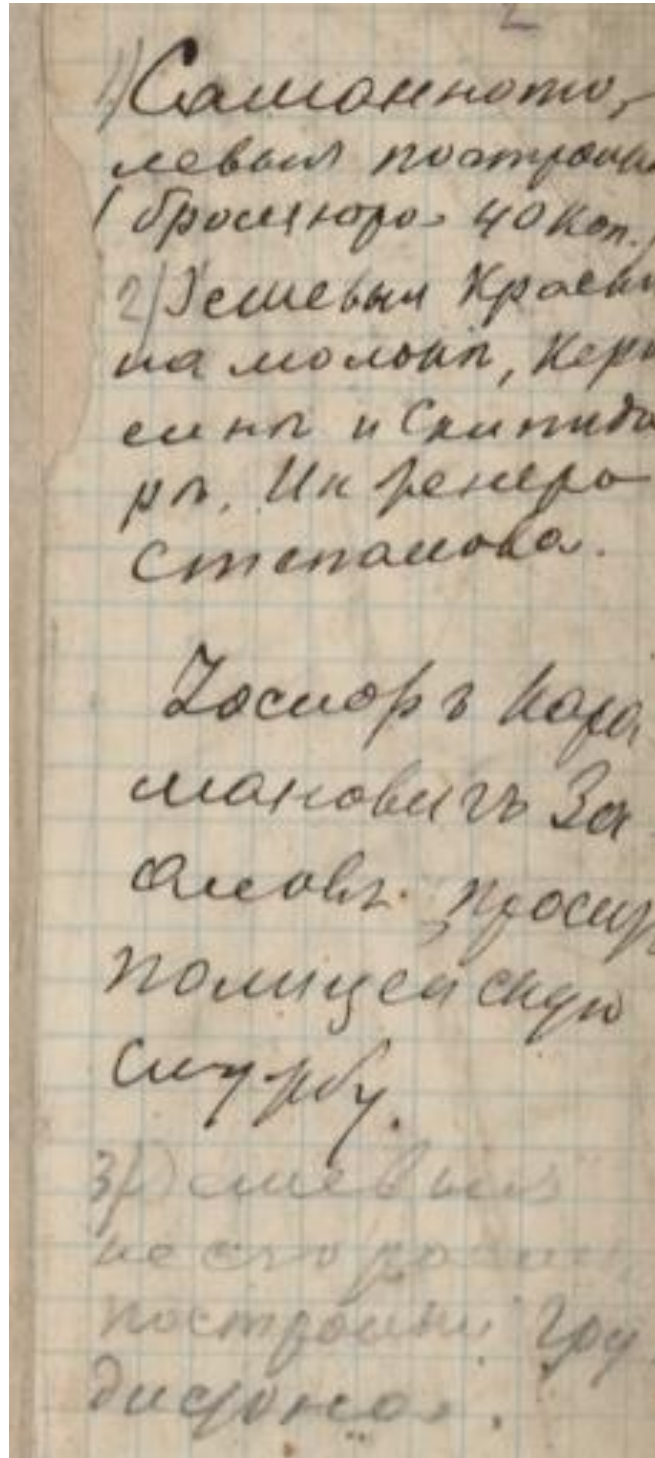 2
1) Саманното-
левыя постройки
(брошюра 40 коп.)
2) Дешевыя Краски
на молокѣ, Керо
синѣ и Скипида
рѣ. Инженера
Степанова.
Хосровъ Кара
мановичъ За
аловъ просит
полицейскую
службу.
3) Дешевыя
несгораемыя
постройки Гру
дистова.